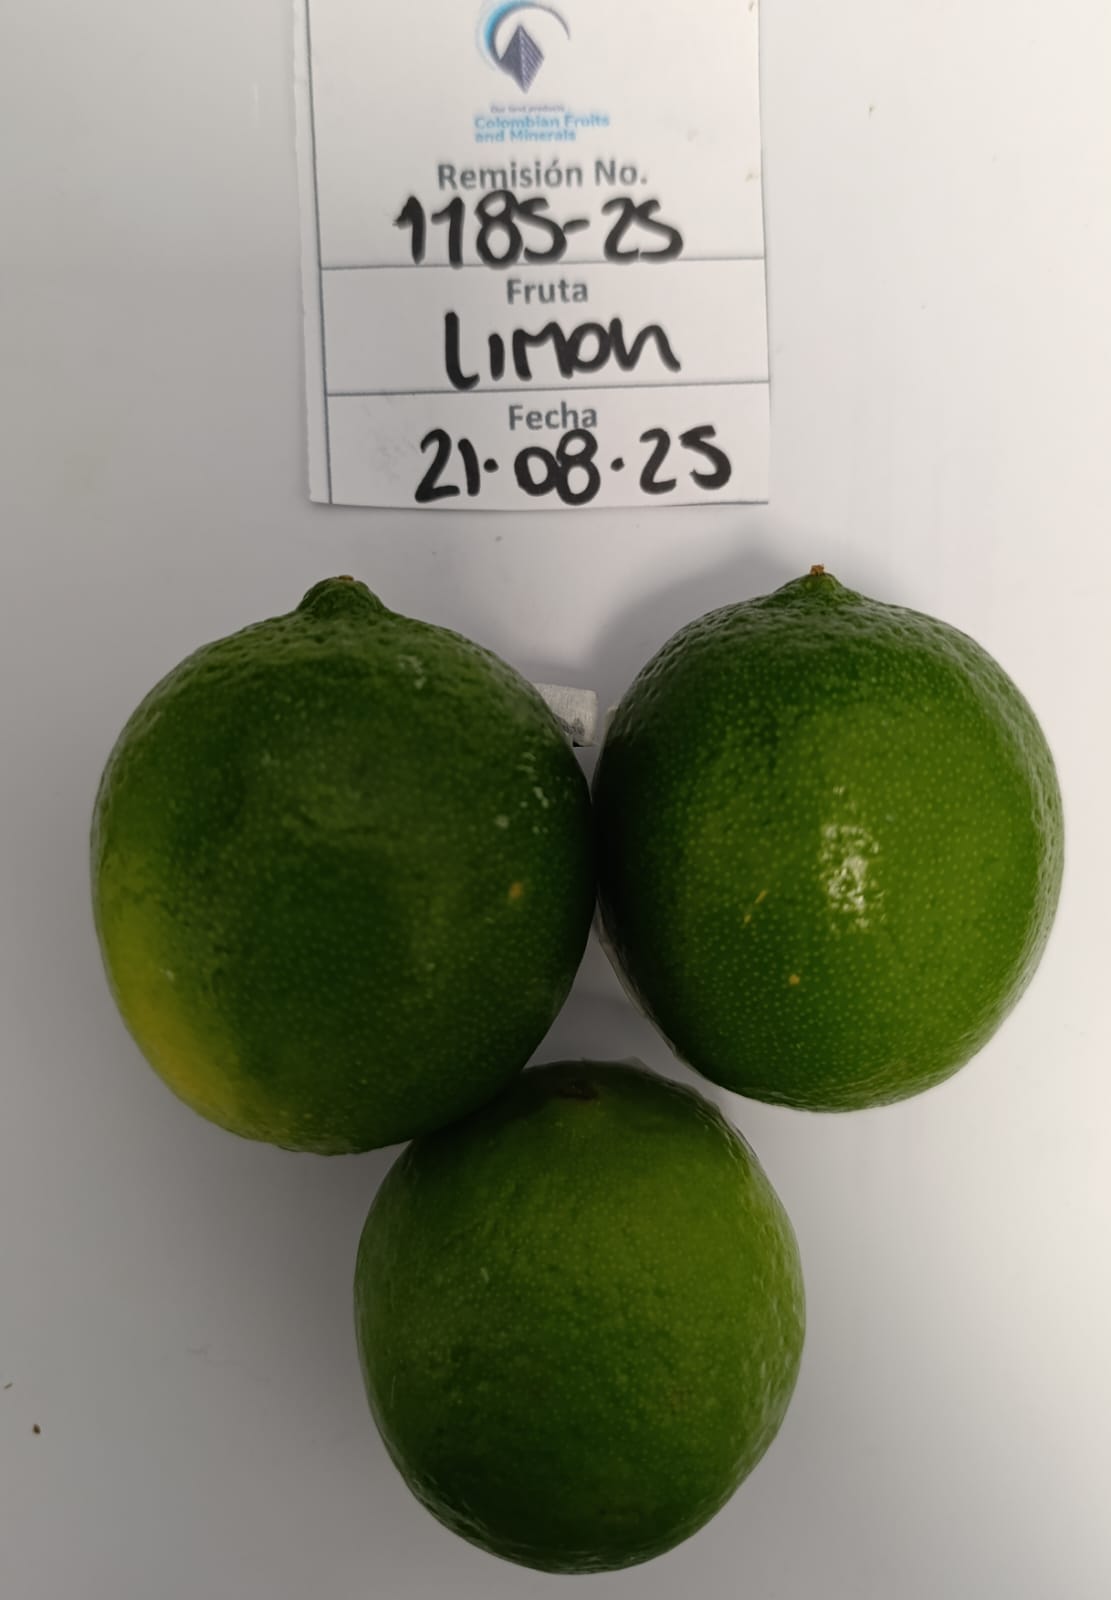 Our best products
Colombian Fruits
and Minerals
Remisión No.
1185-25
Fruta
Limon
Fecha
21.08.25